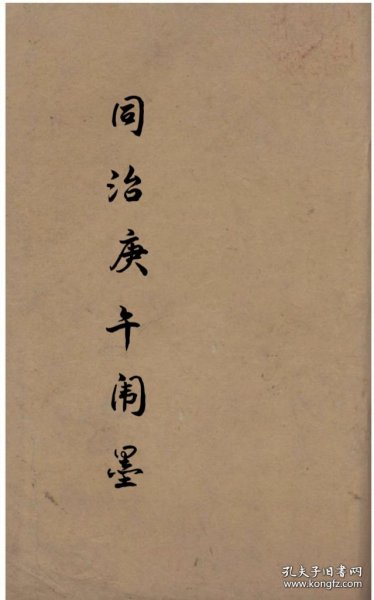 同治庚午闱墨
孔夫子旧书网
www.kongfz.com